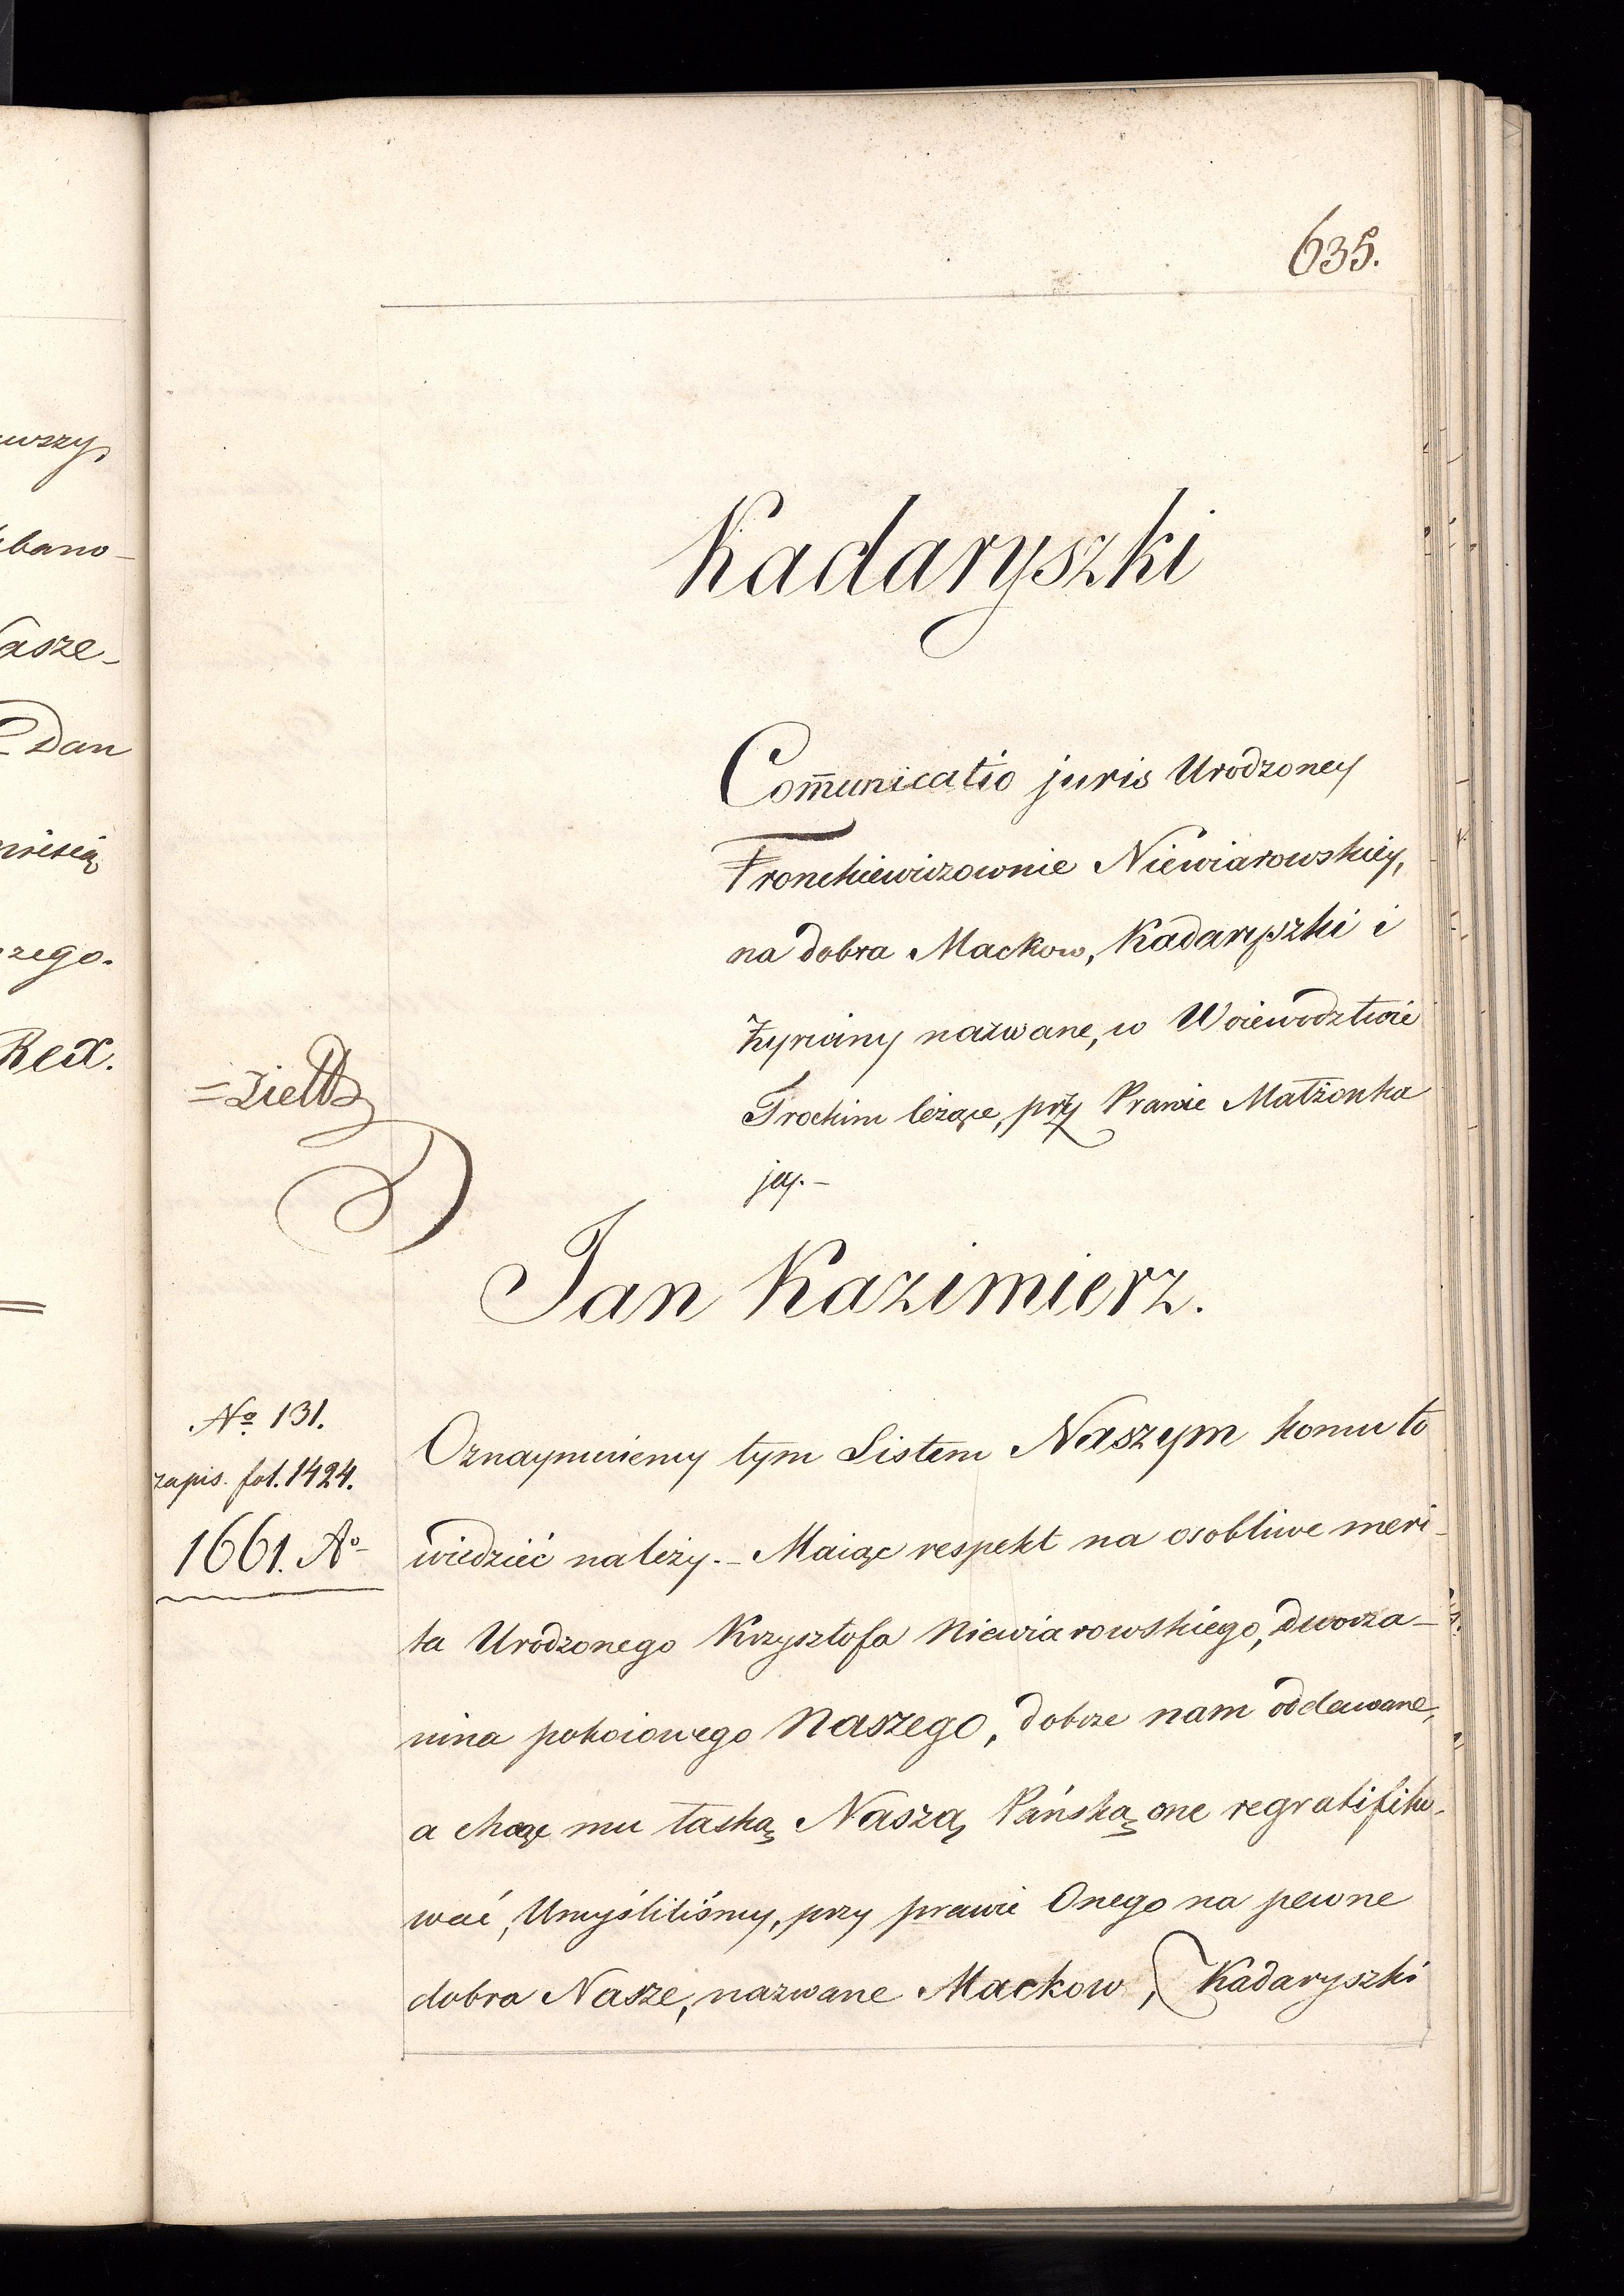 wszy,
bano-
asze-
Dan
zego.
Rex.
635.
Kadaryszki
Com̄unicatio juris Urodzoney
Fronckiewiczownie Niewiarowskiey,
na dobra Mackow, Kadaryszki i
Żyrciny nazwane, w Woiewodztwie
Trockim leżące, przy Prawie Małżonka
jey.-
Jan Kazimierz.
№ 131.
zapis. fol. 1424.
1661. Ao
Oznaymuiemy tym Listem Naszym komu to
wiedzieć należy.- Maiąc respekt na osobliwe meri-
ta Urodzonego Krzysztofa Niewiarowskiego, dworza-
nina pokoiowego Naszego, dobrze nam oddawane,
a chcąc mu łaską Naszą Pańską one regratifiko-
wać, Umyśliliśmy, przy prawie Onego na pewne
dobra Nasze, nazwane Mackow, Kadaryszki